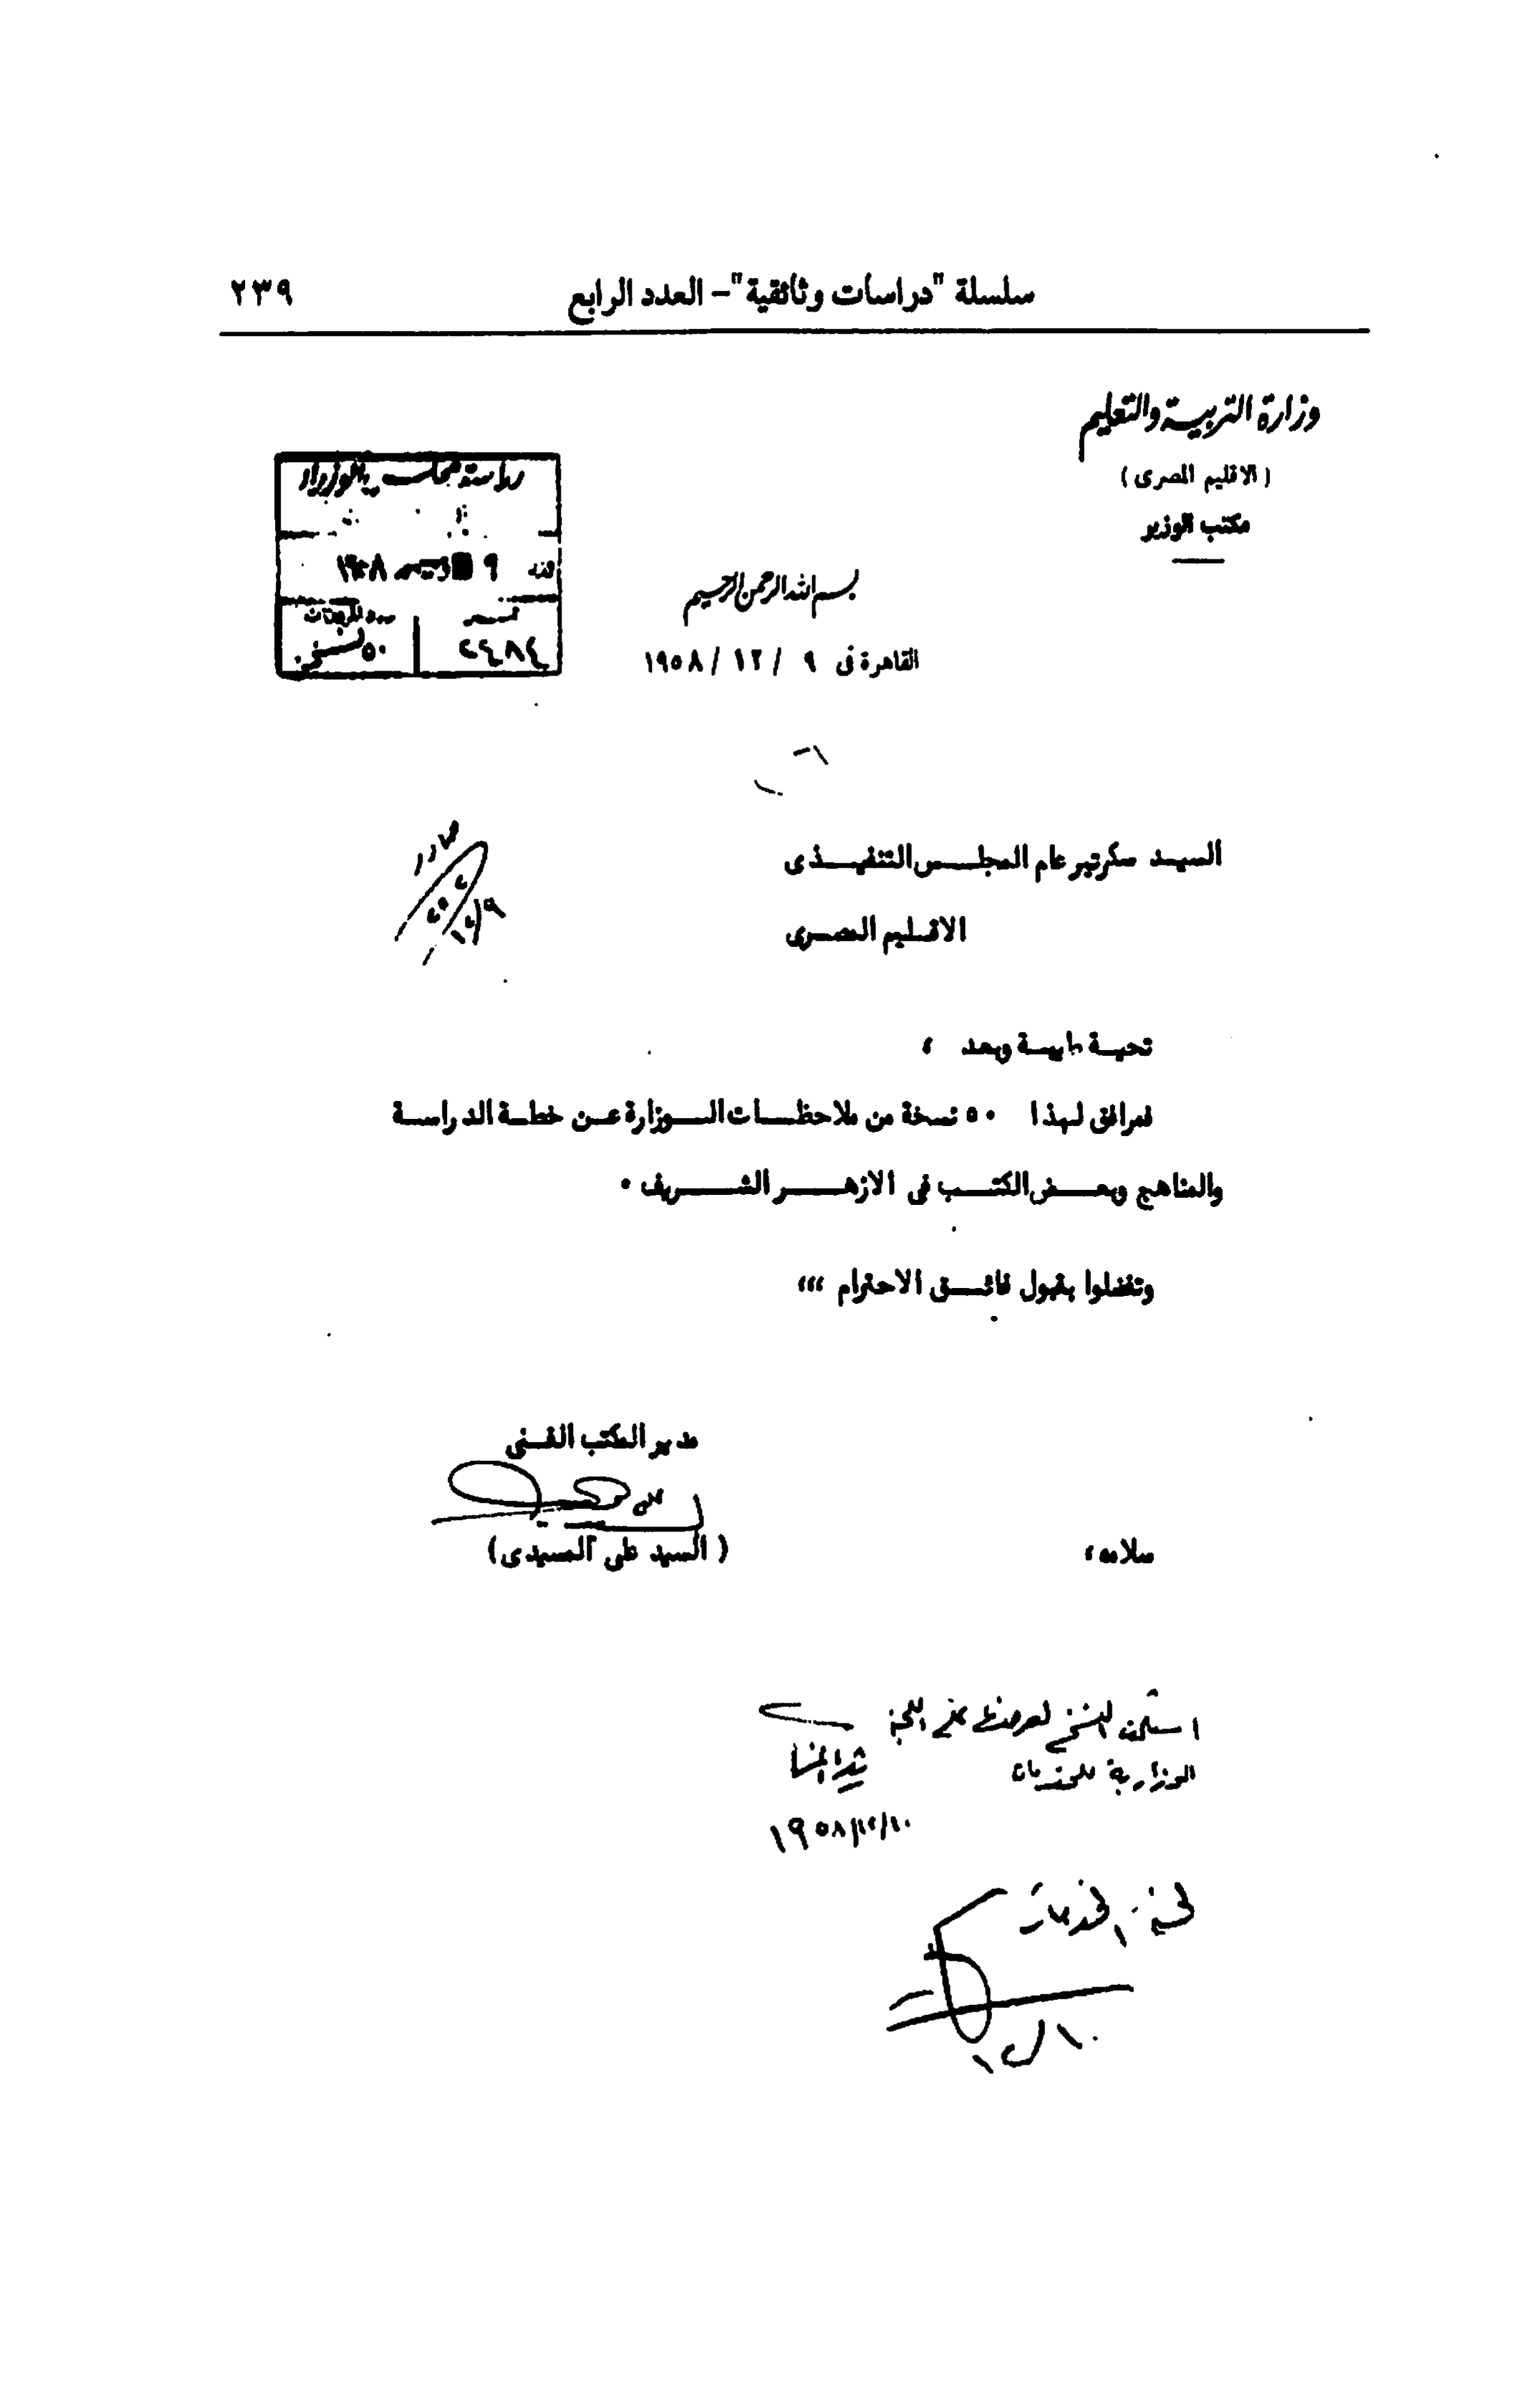 سلسلة "دراسات وثائقية"- العدد الرابع
٢٣٩
وزارة التربية والتعليم
(الاقليم المصرى)
مكتب الوزير
رياسة مجلس الوزراء
٩ ديسمبر ١٩٥٨
عدد المرفقات
٢٤٨٤
٥٠ نسخة
بسم الله الرحمن الرحيم
القاهرة فى ٩ / ١٢ / ١٩٥٨
السيد سكرتير عام المجلس التنفيذى
الاقليم المصرى
تحية طيبة وبعد ،
فمرافق لهذا ٥٠ نسخة من ملاحظات الوزارة عن خطة الدراسة
والمناهج وبعض الكتب فى الازهر الشريف ٠
وتفضلوا بقبول فائق الاحترام ،،،
مدير المكتب الفنى
( السيد على السيدى )
سلامه ،
استلمت النسخ لعرضها على اللجنة
الوزارية للخدمات
١٩٥٨/١٢/١٠
لجنة الخدمات
١٢/١٠